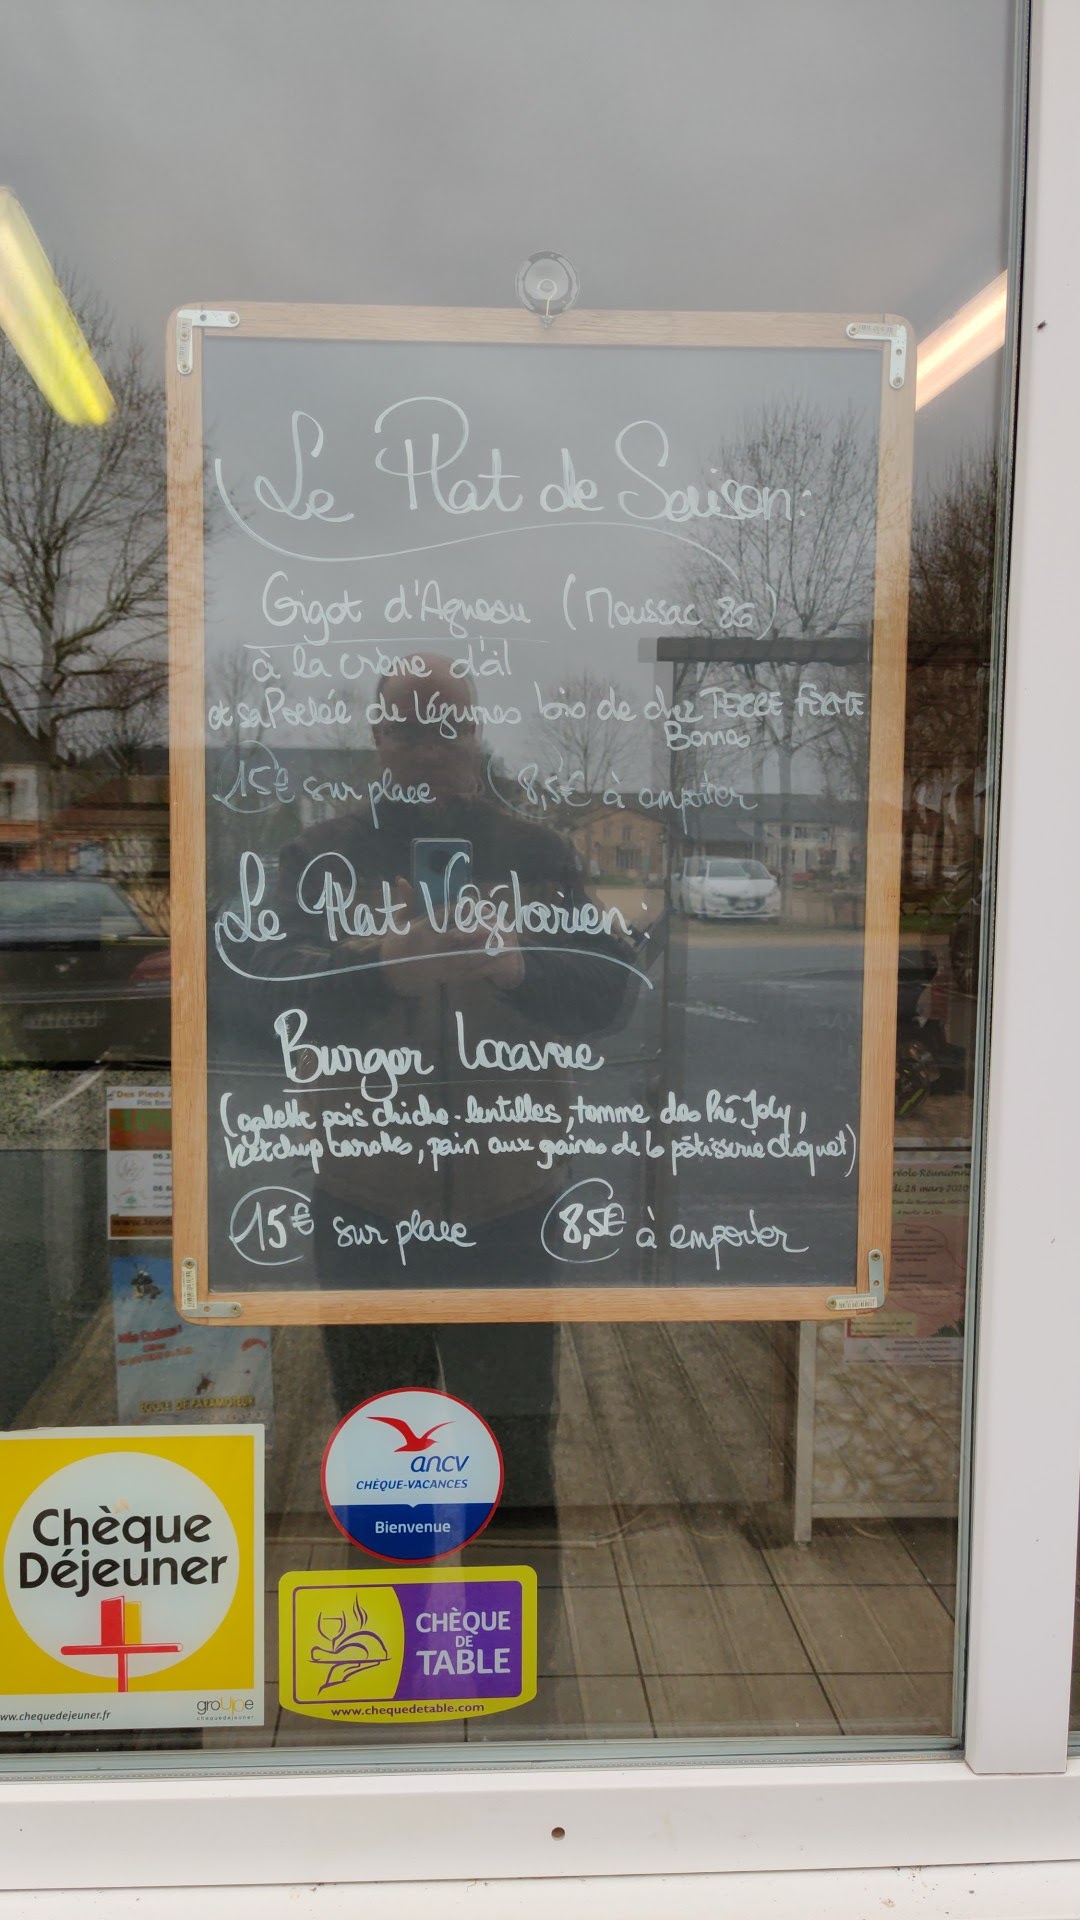 Le Plat de Saison:
Gigot d'Agneau (Moussac 86)
à la crème d'ail
et sa Poêlée de légumes bio de chez TERRE FERME
Bonnes
15€ sur place 8,5€ à emporter
Le Plat Végétarien:
Burger Locavore
(galette pois chiche-lentilles, tomme des Pré Joly,
ketchup carottes, pain aux graines de la pâtisserie
15€ sur place 8,5€ à emporter
Des Pieds
06
06
créole Réunionn
di 28 mars 2020
ÉCOLE DE PARAMOTEUR
Chèque
Déjeuner
ww.chequedejeuner.fr
groupe
chequedejeuner
ancv
CHÈQUE-VACANCES
Bienvenue
CHÈQUE
DE
TABLE
www.chequedetable.com